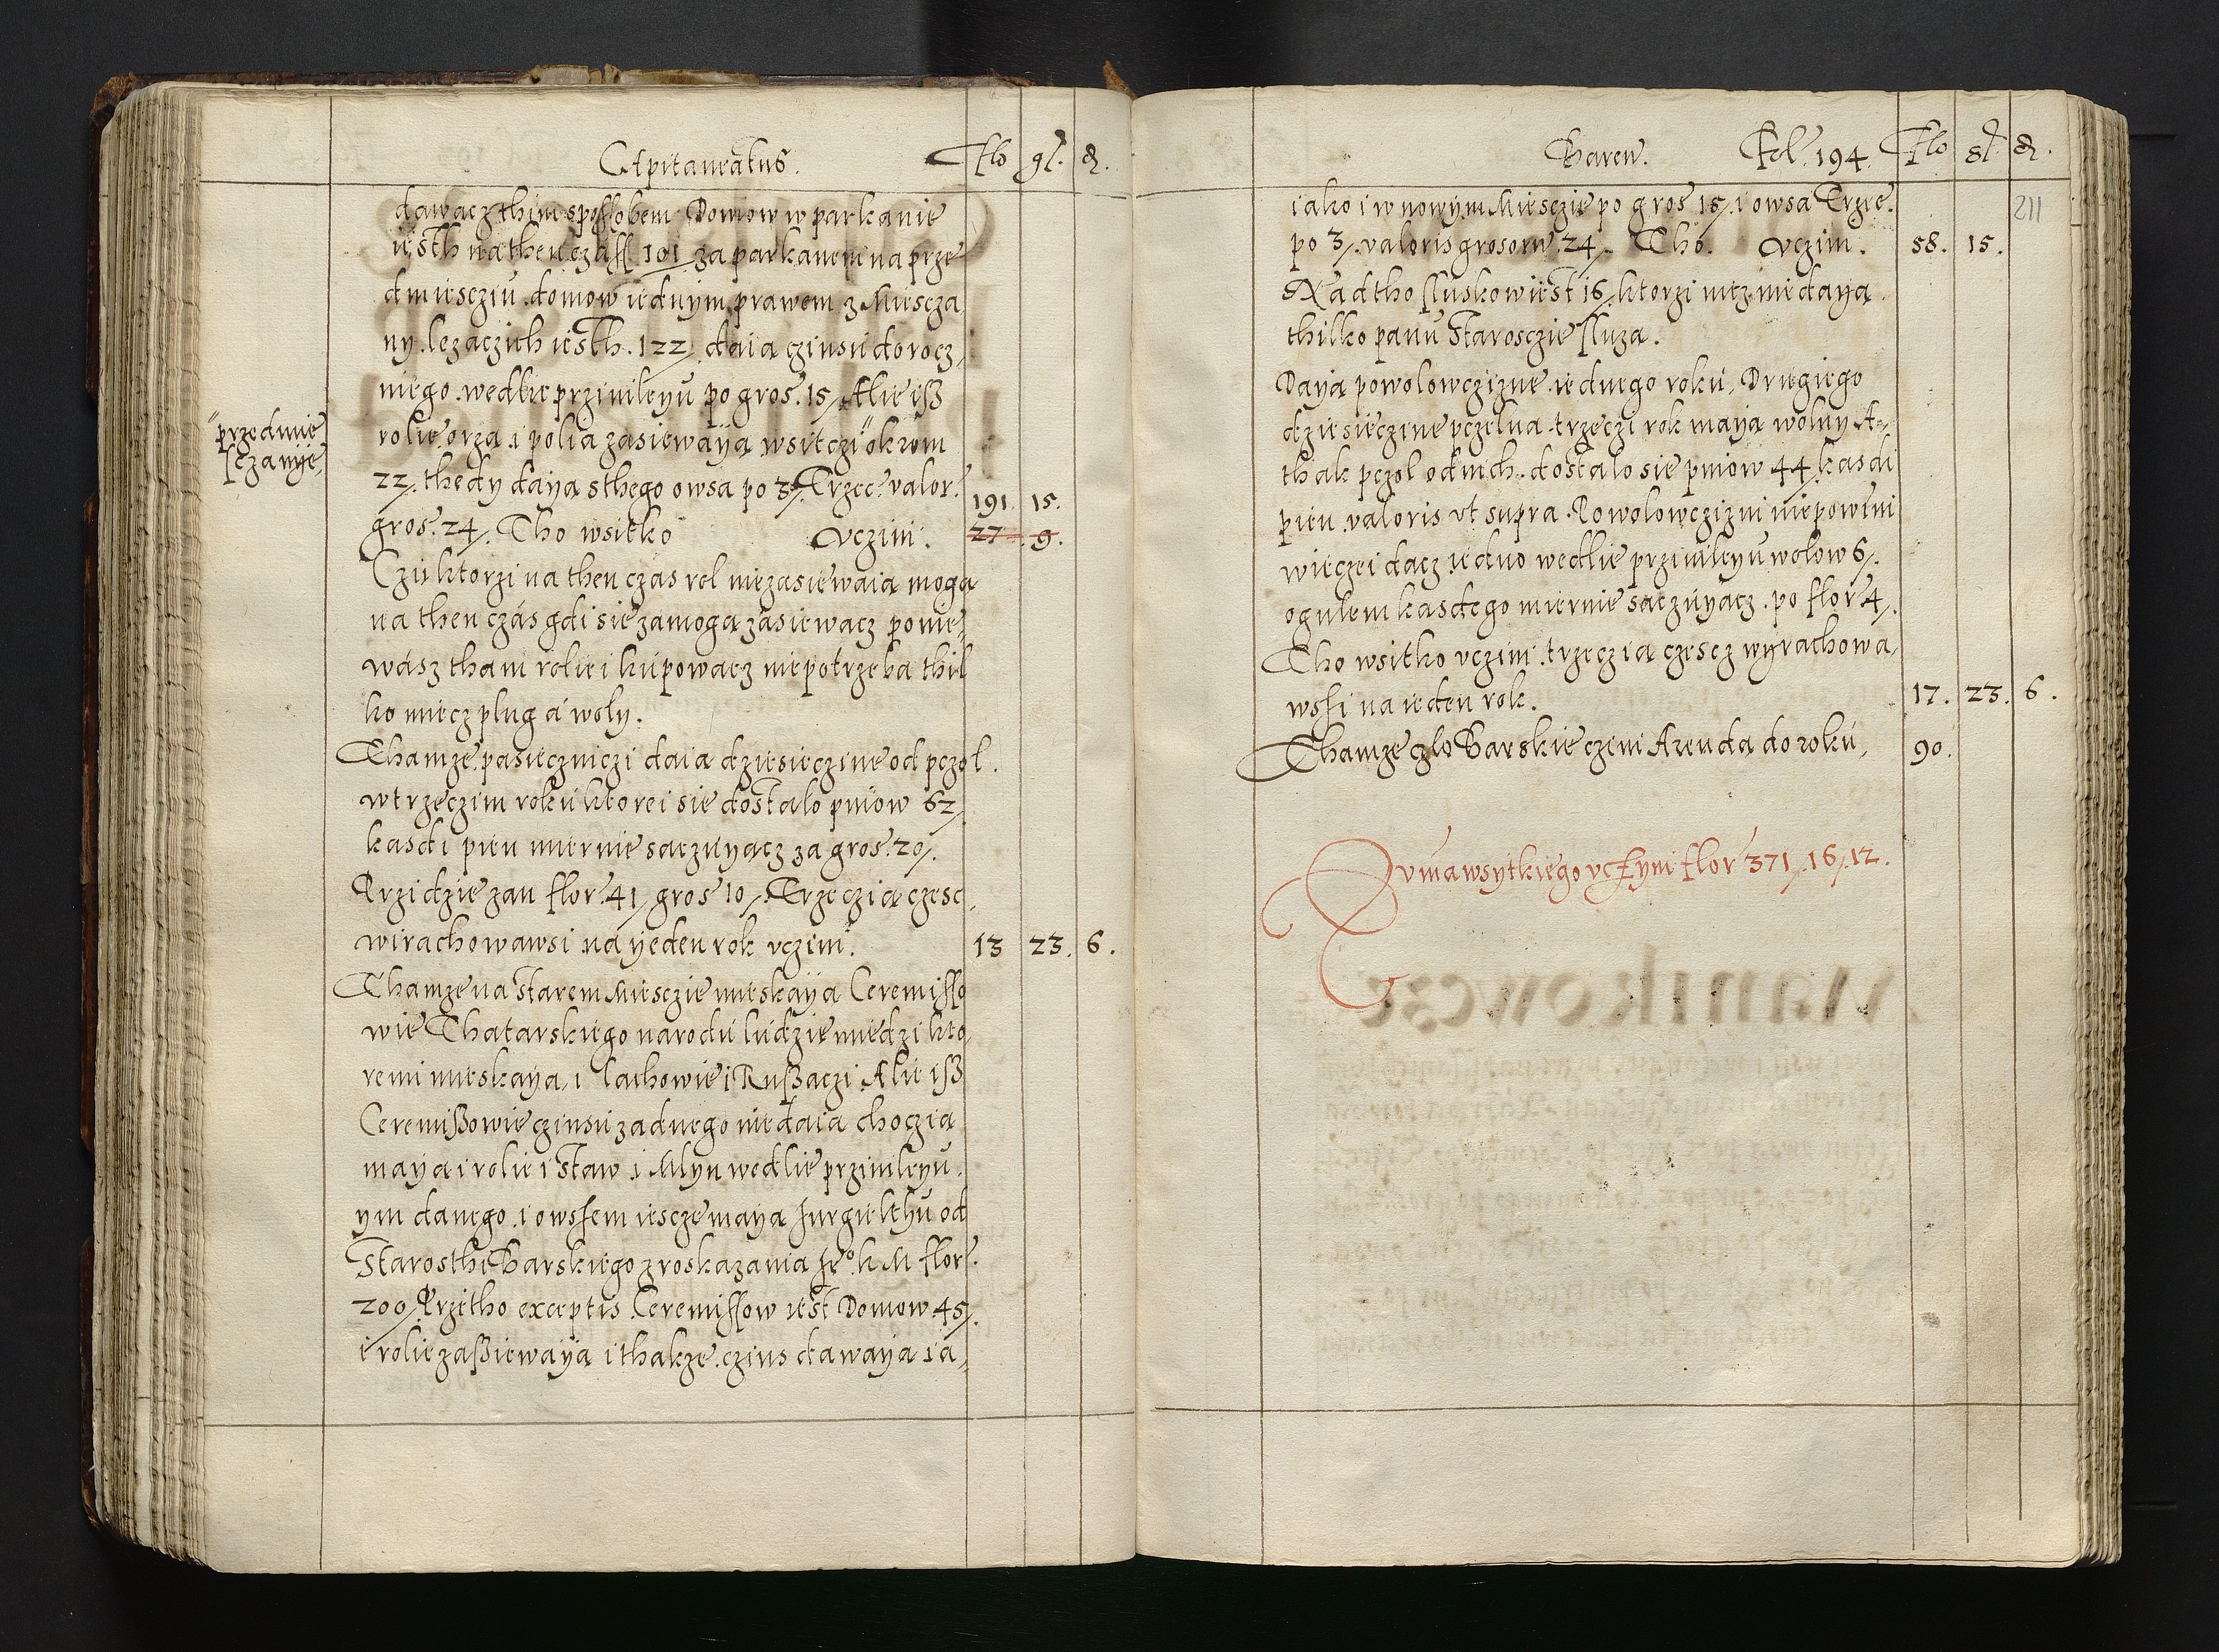 Capitaneatus. Flo gl. d.
dawacz thim spossobem Domow w parkanie
iesth na then czass 101 / za parkanem na prze
dmiesciu domow iednym prawem z Miescza
ny lezaczich iesth. 122 / daia czinsu dorocz,
niego wedlie przivileyu po gros. 15 / Alie isz
rolie orza i polia zasiewaya wsitczi " okrom
" przedmie
sczanye,
22 /. thedy daya s thego owsa po 3 / Trzec. valor.
191. 15.
gros. 24 /. Tho wsitko vczini. 27. 9.
Czi ktorzi na then czas rol nie zasiewaia moga
na then czás gdi sie zamoga zasiewacz ponie,
wász tham rolie i kupowacz nie potrzeba thil
ko miecz plug á woly.
Thamze pasieczniczi daia dziesieczine od pczol.
w trzeczim roku ktorei sie dostalo pniow 62 /
kasdi pien miernie saczuyacz za gros. 20 /.
Przidzie zan flor. 41 / gros 10 /. Trzeczia czesc,
wirachowawsi ná yeden rok vczini. 13 23. 6.
Thamze na starem Miesczie mieskaya Ceremisso
wie Thatarskiego narodu ludzie miedzi kto,
remi mieskaya, i Lachowie i Ruszaczi Alie isz
Ceremiszowie czinsu zadnego nie daia choczia
maya i rolie i staw i Mlyn wedlie przivileyu
ym danego i owssem iescze maya Jurgielthu od
Starosthi Barskiego z roskazania Jeº. K M flor.
200 / Przitho exceptis Ceremissow iest Domow 45 /.
i rolie zasziewaya i thakze czins dawaya ia,
Baren. Fol. 194. Flo gl. d.
211
iako i w nowym Miesczie po gros 15 /. i owsa Trze.
po 3 /. valoris grosorum 24 /. Tho. vczini. 58. 15.
Nad tho sluskow iest 16 / ktorzi nicz nie daya
thilko panu Starosczie sluza.
Daya powolowczizne iednego roku, Drugiego
dziesieczine pczelna trzeczi rok maya wolny A,
thak pczol od nich dostalo sie pniow 44 / kasdi
pien valoris vt supra. Powolowczizni nie powini
wieczei dacz iedno wedlie przivileyu wolow 6 /.
ogulem kasdego miernie saczuyacz po flor 4 /.
Tho wsitko vczini trzeczia czescz wyrachowa,
wssi na ieden rok. 17. 23. 6.
Thamze czlo Barskie czini Arenda do roku, 90.
Suma wsytkiego vczyni flor 371 /. 16 /. 12.